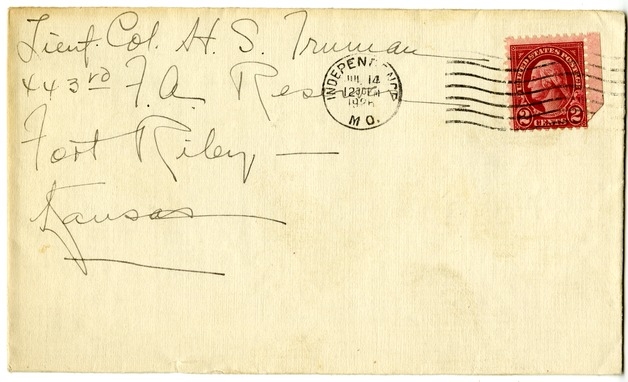 Lieut. Col. H. S. Truman
443rd F.A. Reserve
Fort Riley —
Kansas
INDEPENDENCE
JUL 14
MO.
UNITED STATES POSTAGE
2 CENTS 2